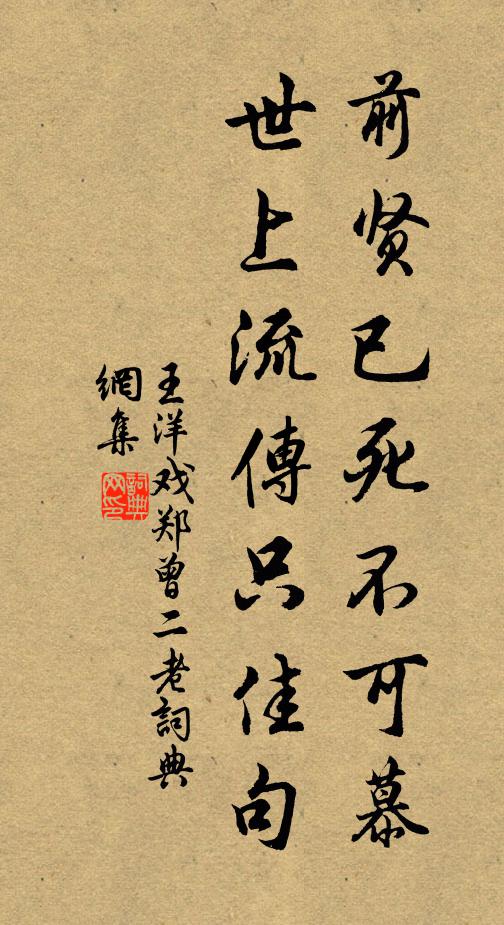 前贤已死不可慕
世上流傳只佳句
王洋戏郑曾二老詞典
網集
詞典
网印